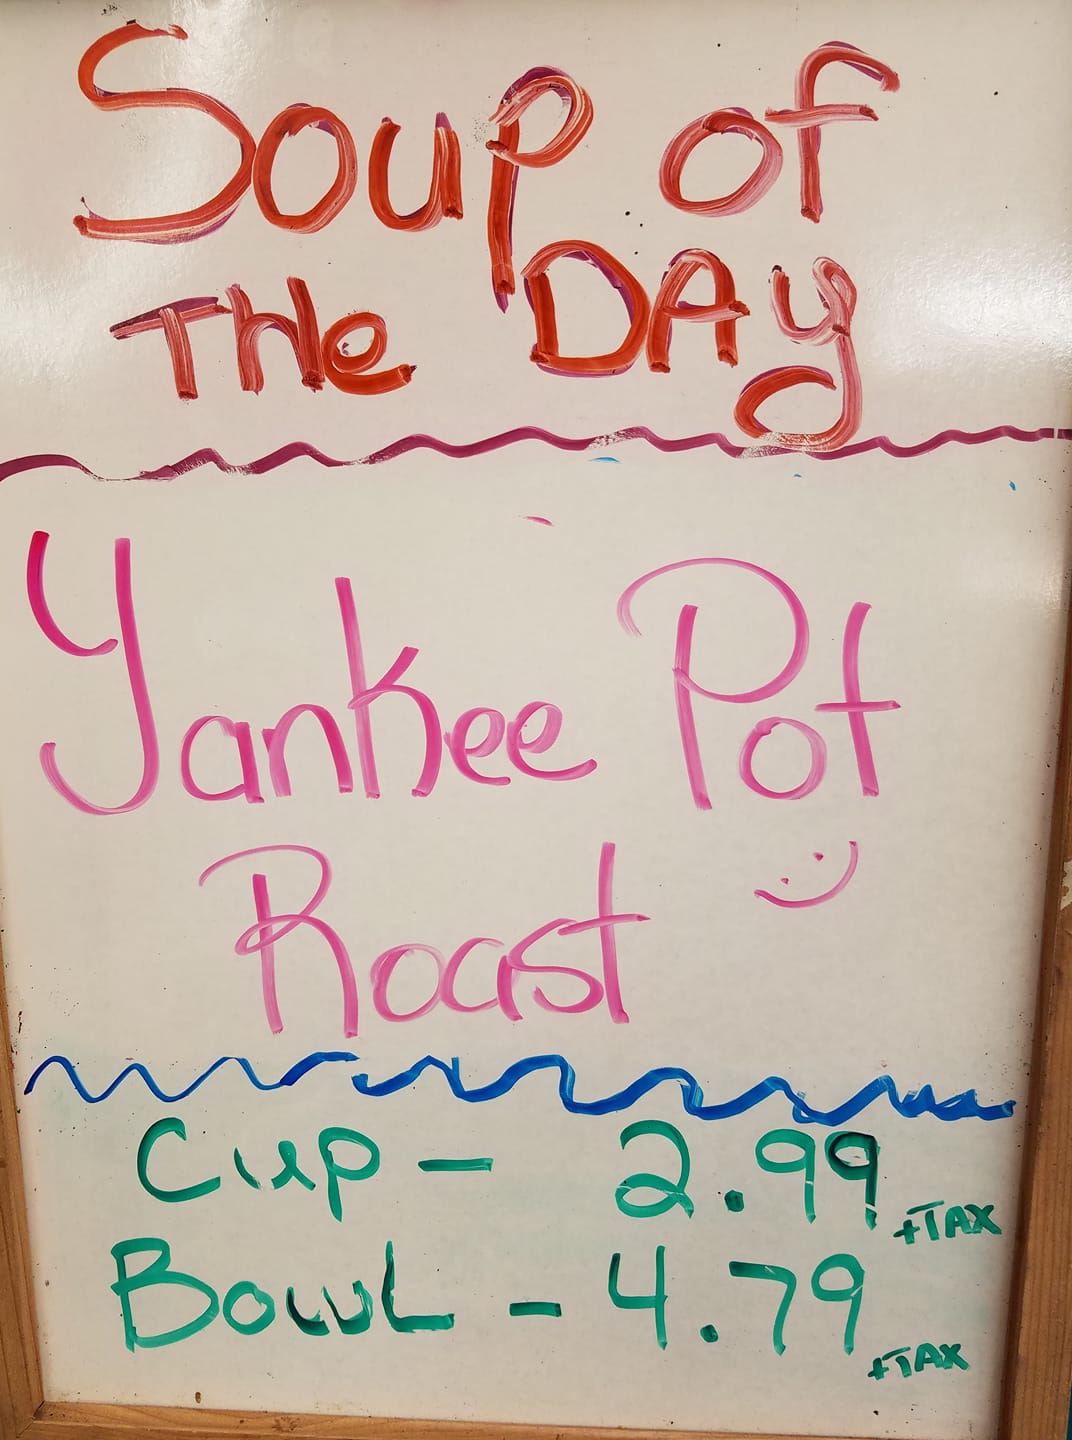 Soup of
The DAy
Yankee Pot
Roast :)
Cup - 2.99 +TAX
BowL - 4.79 +TAX